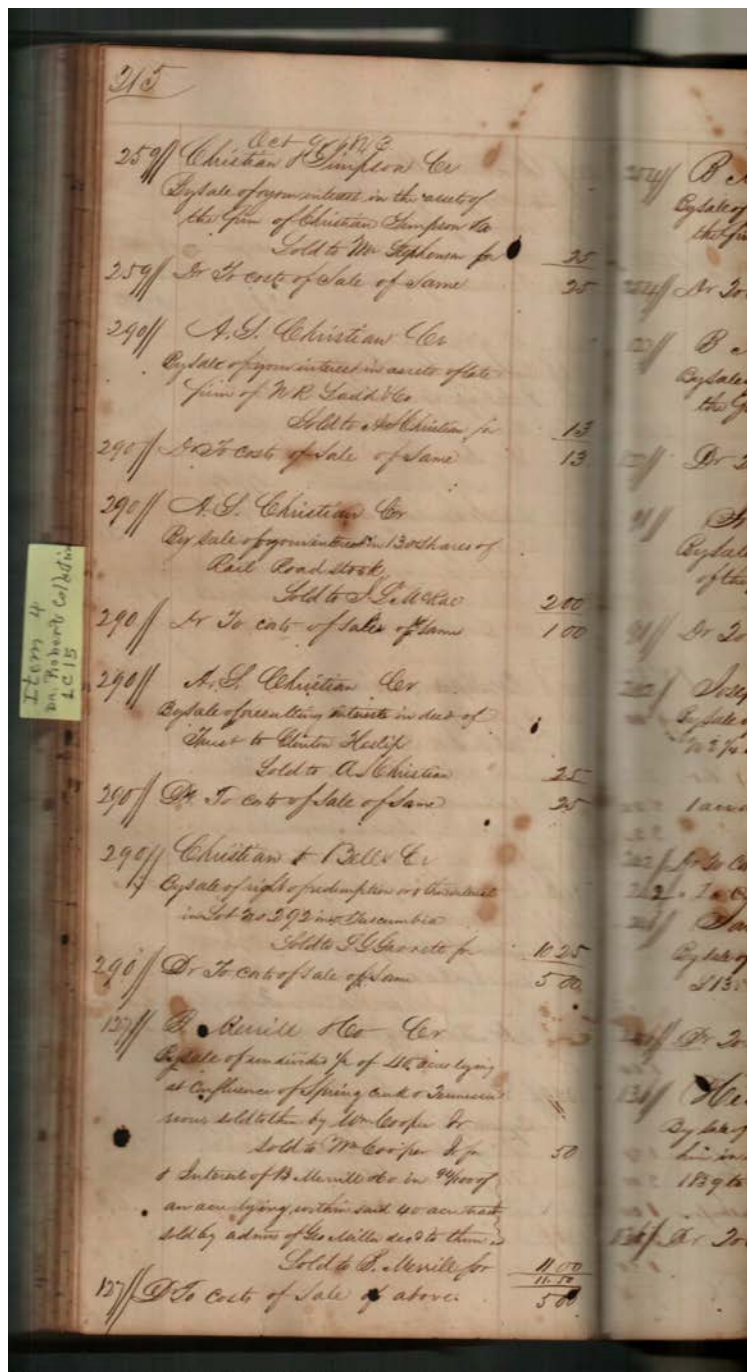 215
Oct 9 1843
259 Christian & Simpson Cr
By sale of your interest in the assets of
the firm of Christian Simpson &Co
Sold to Wm Stephenson for 25
259 Dr To costs of Sale of Same 25
290 A. S. Christian Cr
By sale of your interest in assets of late
firm of N R Ladd &Co
Sold to A S Christian for 13
290 Dr To costs of Sale of Same 13
290 A. S. Christian Cr
By Sale of your interest in 130 Shares of
Rail Road stock
Sold to McRae 2 00
290 Dr To costs of sale of same 1 00
290 A. S. Christian Cr
By Sale of resulting interests in deed of
Trust to Clinton Heslip
Sold to A S Christian 25
290 Dr To costs of Sale of Same 25
290 Christian & Bell Cr
By sale of right of redemption or other interest
in Lot no 292 in Tuscumbia
Sold to Garrett for 10 25
290 Dr To costs of sale of Same 5 00
127 B. Merrill &Co Cr
By sale of undivided ½ of 40 acres lying
at Confluence of Spring creek & Tennessee
river sold to them by Wm Cooper Sr
Sold to Wm Cooper Sr for 50
& Interest of B Merrill &Co in 94/100 of
an acre lying within said 40 acre tract
sold by admrs of Geo Miller decd to them
Sold to B. Merrill for 11 00
11.50
127 D To costs of Sale of above 5 00
Item 4
Dr. Roberts Collection
LC15
B
By sale of
the
Dr To
B
By sale
the
Dr
By sale
of the
Dr To
By sale of
1 acre
By sale of
Dr To
By sale of
1839 to
Dr To